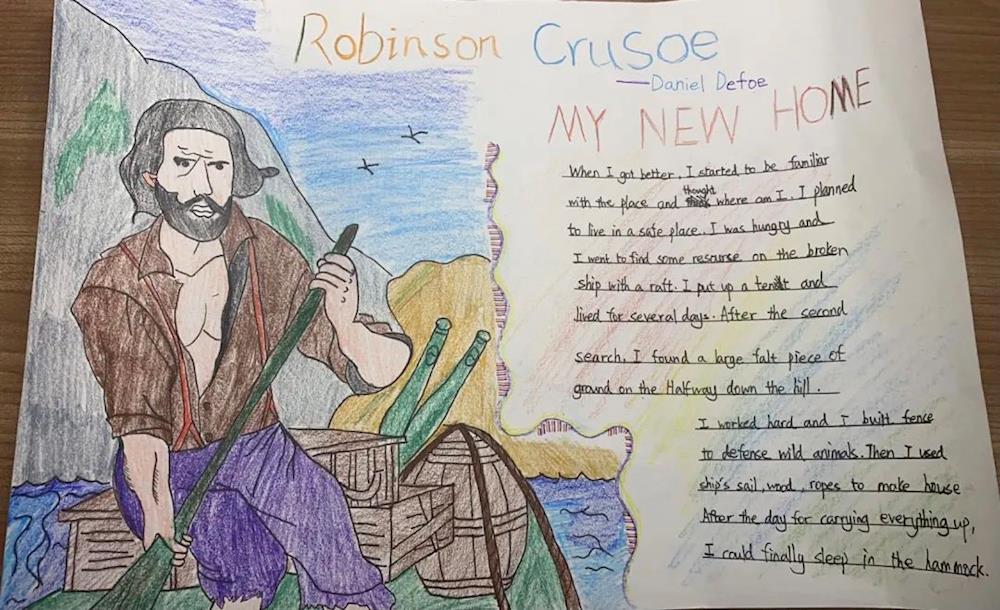 Robinson Crusoe
—Daniel Defoe
MY NEW HOME
When I got better, I started to be familiar
with the place and thought where am I. I planned
to live in a safe place. I was hungry and
I went to find some resourse on the broken
ship with a raft. I put up a tent and
lived for several days. After the second
search, I found a large falt piece of
ground on the Halfway down the hill.
I worked hard and I built fence
to defense wild animals. Then I used
ship's sail, wood, ropes to make house
After the day for carrying everything up,
I could finally sleep in the hammock.